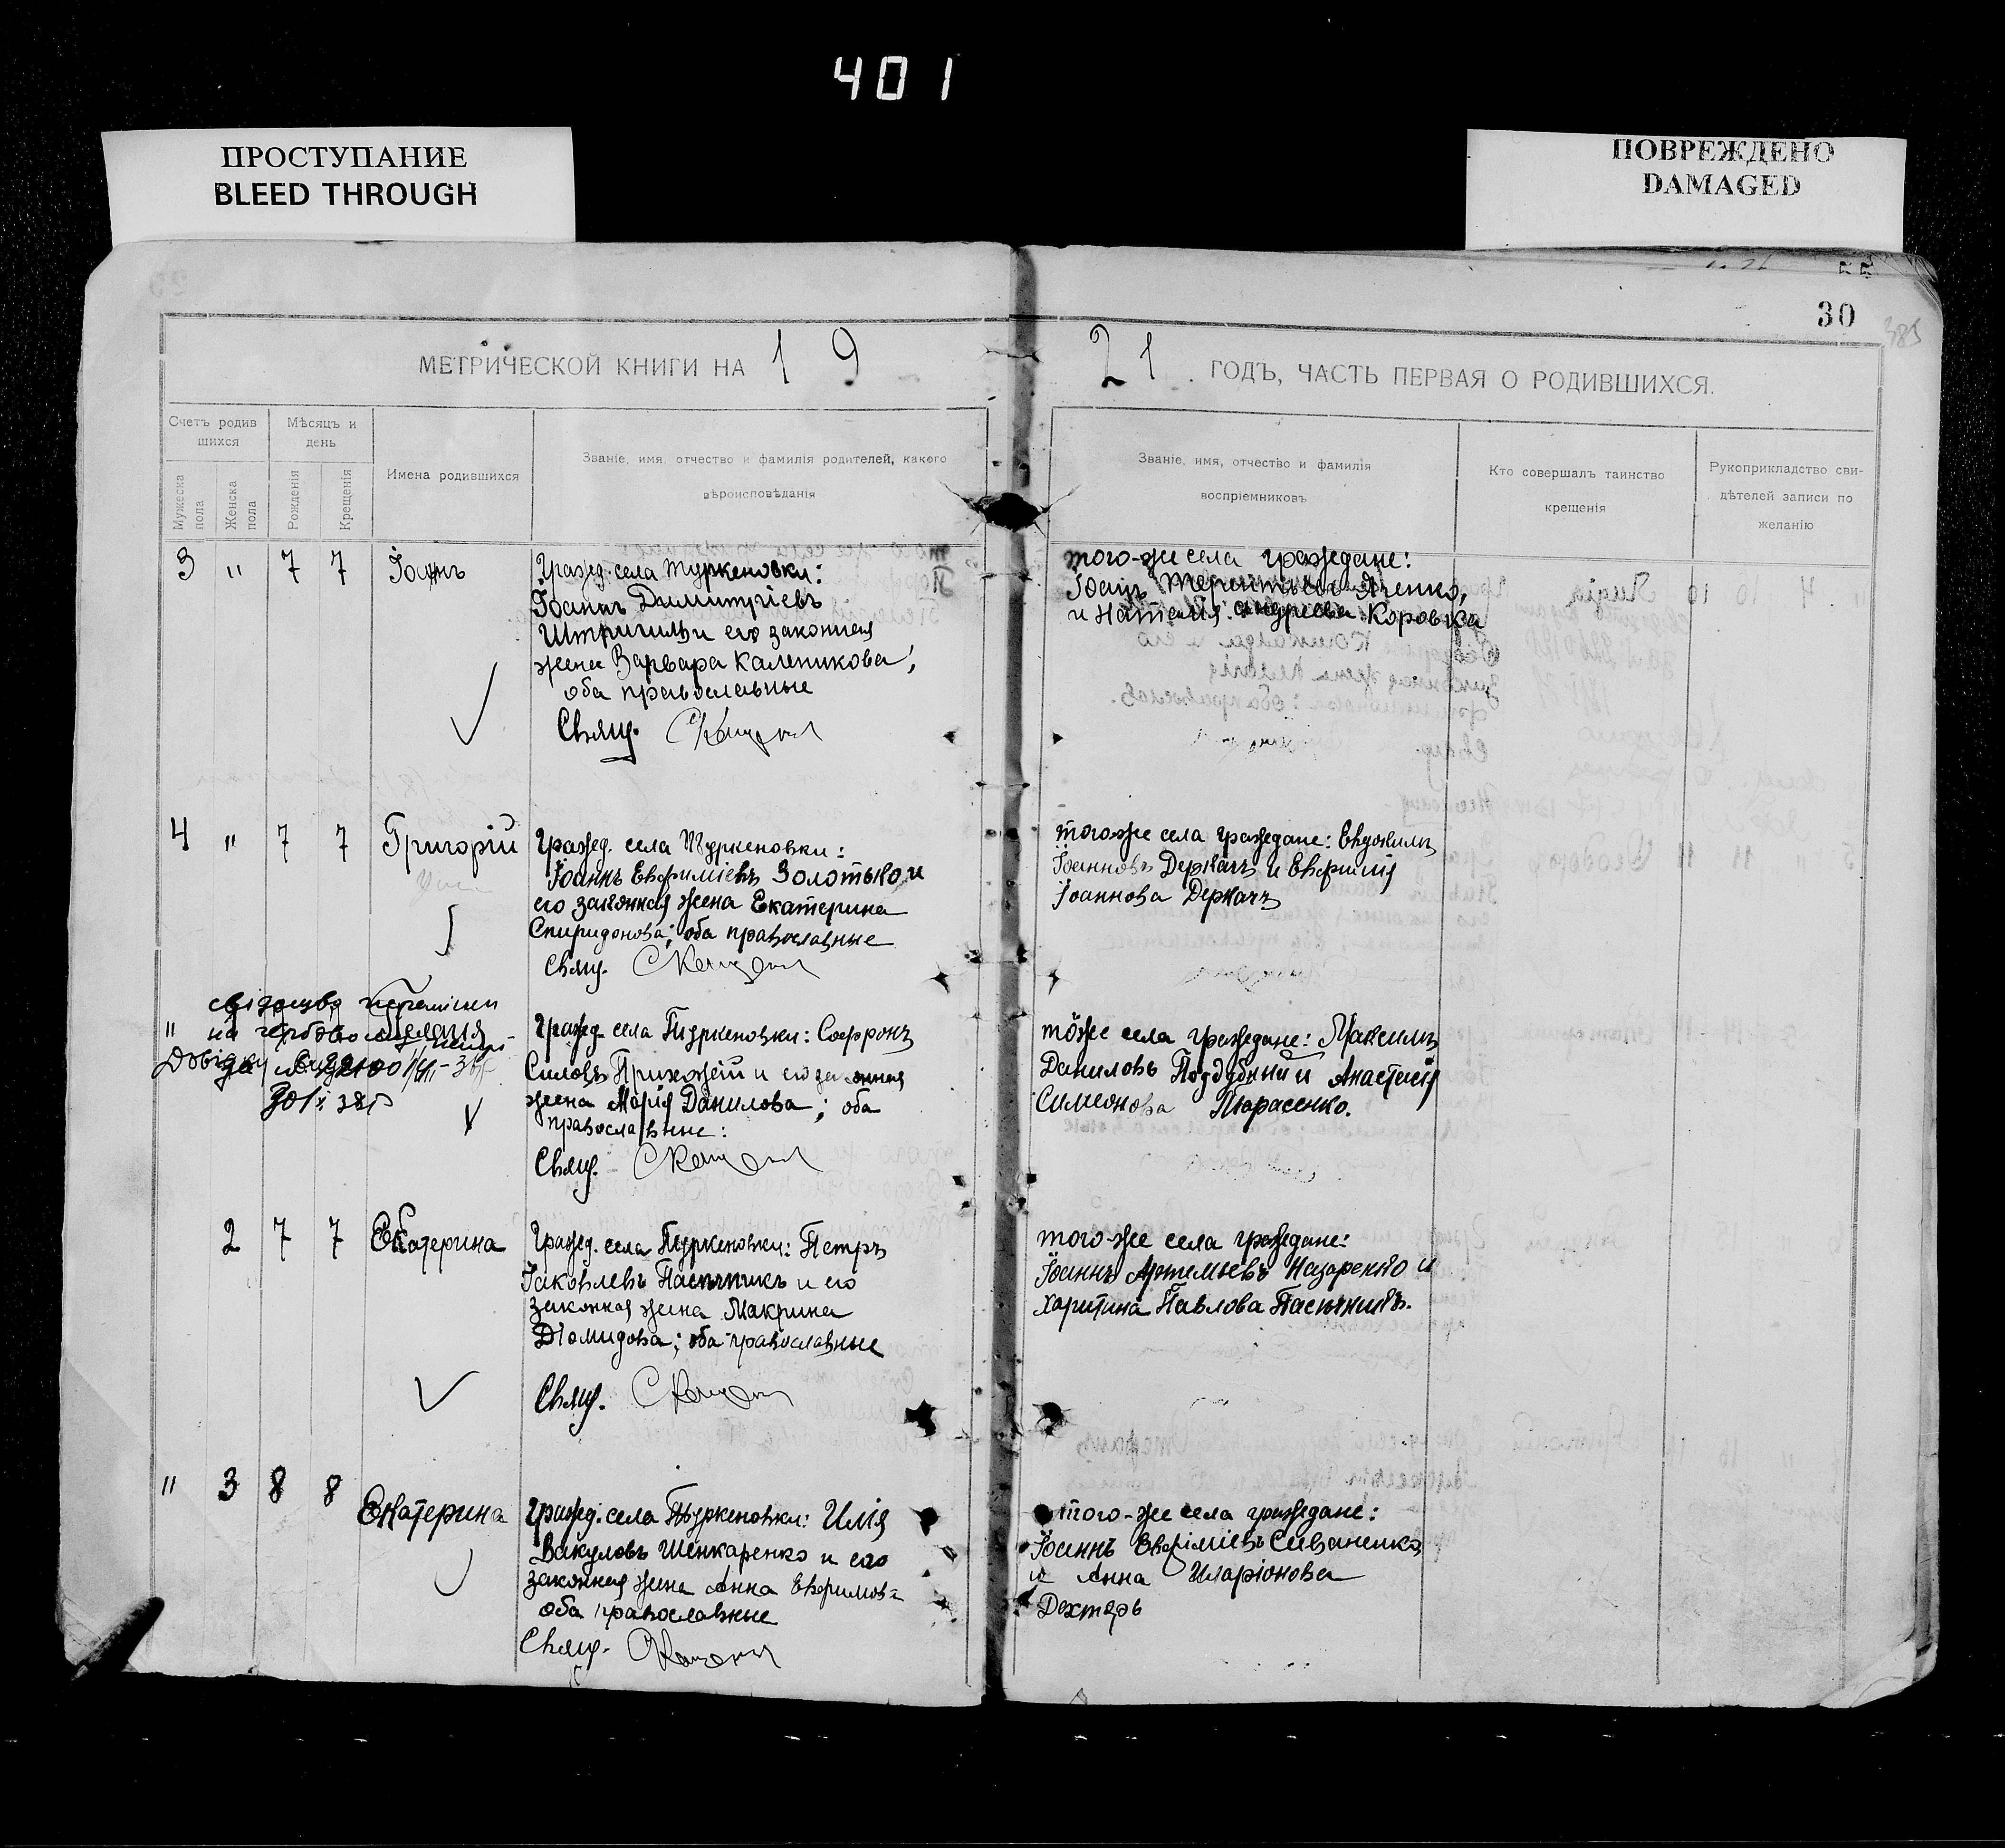 401
ПРОСТУПАНИЕ
BLEED THROUGH
ПОВРЕЖДЕНО
DAMAGED
55
30
385
МЕТРИЧЕСКОЙ КНИГИ НА 19
21 ГОДЪ, ЧАСТЬ ПЕРВАЯ О РОДИВШИХСЯ.
Счетъ родив
шихся
Мѣсяцъ и
день
Мужеска
пола
Женска
пола
Рожденія
Крещенія
Имена родившихся
Званіе, имя, отчество и фамилія родителей, какого
вѣроисповѣданія
Званіе, имя, отчество и фамилія
воспріемниковъ
Кто совершалъ таинство
крещенія
Рукоприкладство сви-
дѣтелей записи по
желанію
3 " 7 7 Іоаннъ
Гражд. села Туркеновки:
Іоаннъ Димитріевъ
Штригиль и его законная
жена Варвара Каленикова;
оба православные
Свящ.
того-же села граждане:
Іоаннъ Терентьевъ Яценко,
и Наталія Андреева Коровка
4 " 7 7 Григорій
Гражд. села Туркеновки:
Іоаннъ Евфиміевъ Золотько и
его законная жена Екатерина
Спиридонова; оба православные
Свящ.
того же села граждане: Евдокимъ
Іоанновъ Деркачъ и Евфимія
Іоаннова Деркачъ
"
Довідку
Гражд. села Туркеновки: Софронъ
Силовъ Прихожій и его законная
жена Марія Данилова; оба
православные:
Свящ.
тоже села граждане: Максимъ
Даниловъ Поддубный и Анастасія
Симеонова Тарасенко.
2 7 7 Екатерина
Гражд. села Туркеновки: Петръ
Іаковлевъ Пасѣчникъ и его
законная жена Макрина
Діомидова; оба православные
Свящ.
того-же села граждане:
Іоаннъ Артемьевъ Назаренко и
Харитина Павлова Пасѣчникъ.
" 3 8 8 Екатерина
Гражд. села Туркеновки: Илія
Вакуловъ Шенкаренко и его
законная жена Анна Евфимов-
оба православные
Свящ.
того-же села граждане:
Іоаннъ Евфиміевъ Сиваненко
и Анна Иларіонова
Дехтярь